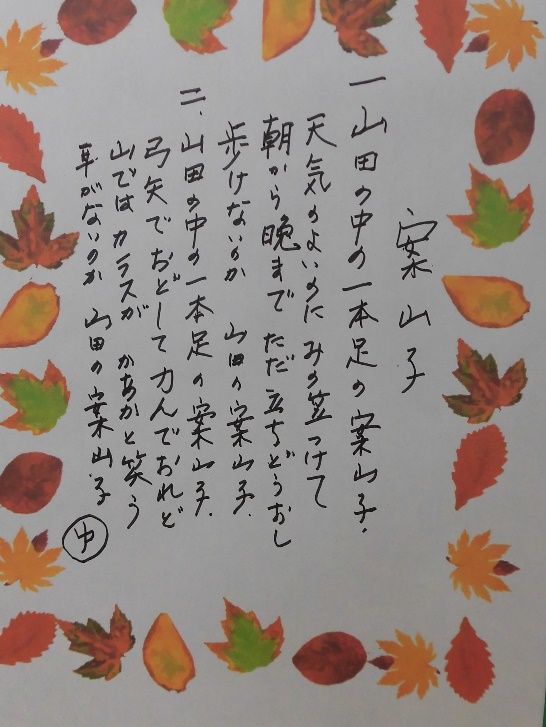 案山子
一山田の中の一本足の案山子.
天気のよいのにみの笠つけて
朝から晩まで ただ立ちどうおし
歩けないのか 山田の案山子.
二、山田の中の一本足の案山子.
弓矢でおどして力んでおれど
山ではカラスが かあかと笑う
耳がないのか 山田の案山子